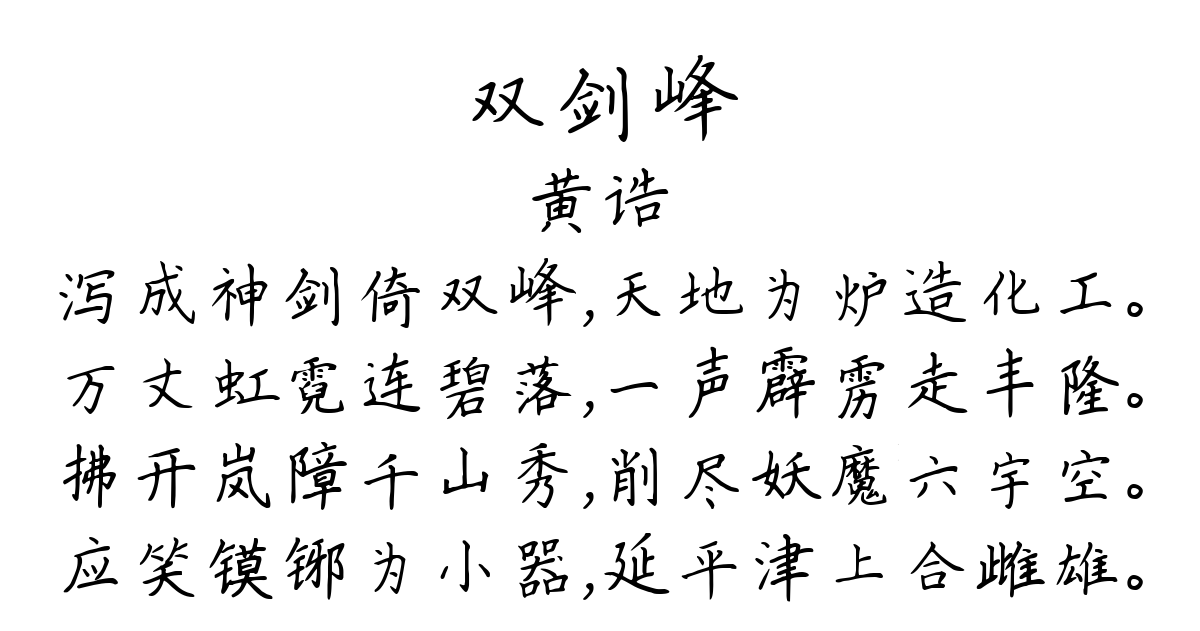 双剑峰
黄诰
泻成神剑倚双峰,天地为炉造化工。
万丈虹霓连碧落,一声霹雳走丰隆。
拂开岚障千山秀,削尽妖魔六宇空。
应笑镆铘为小器,延平津上合雌雄。